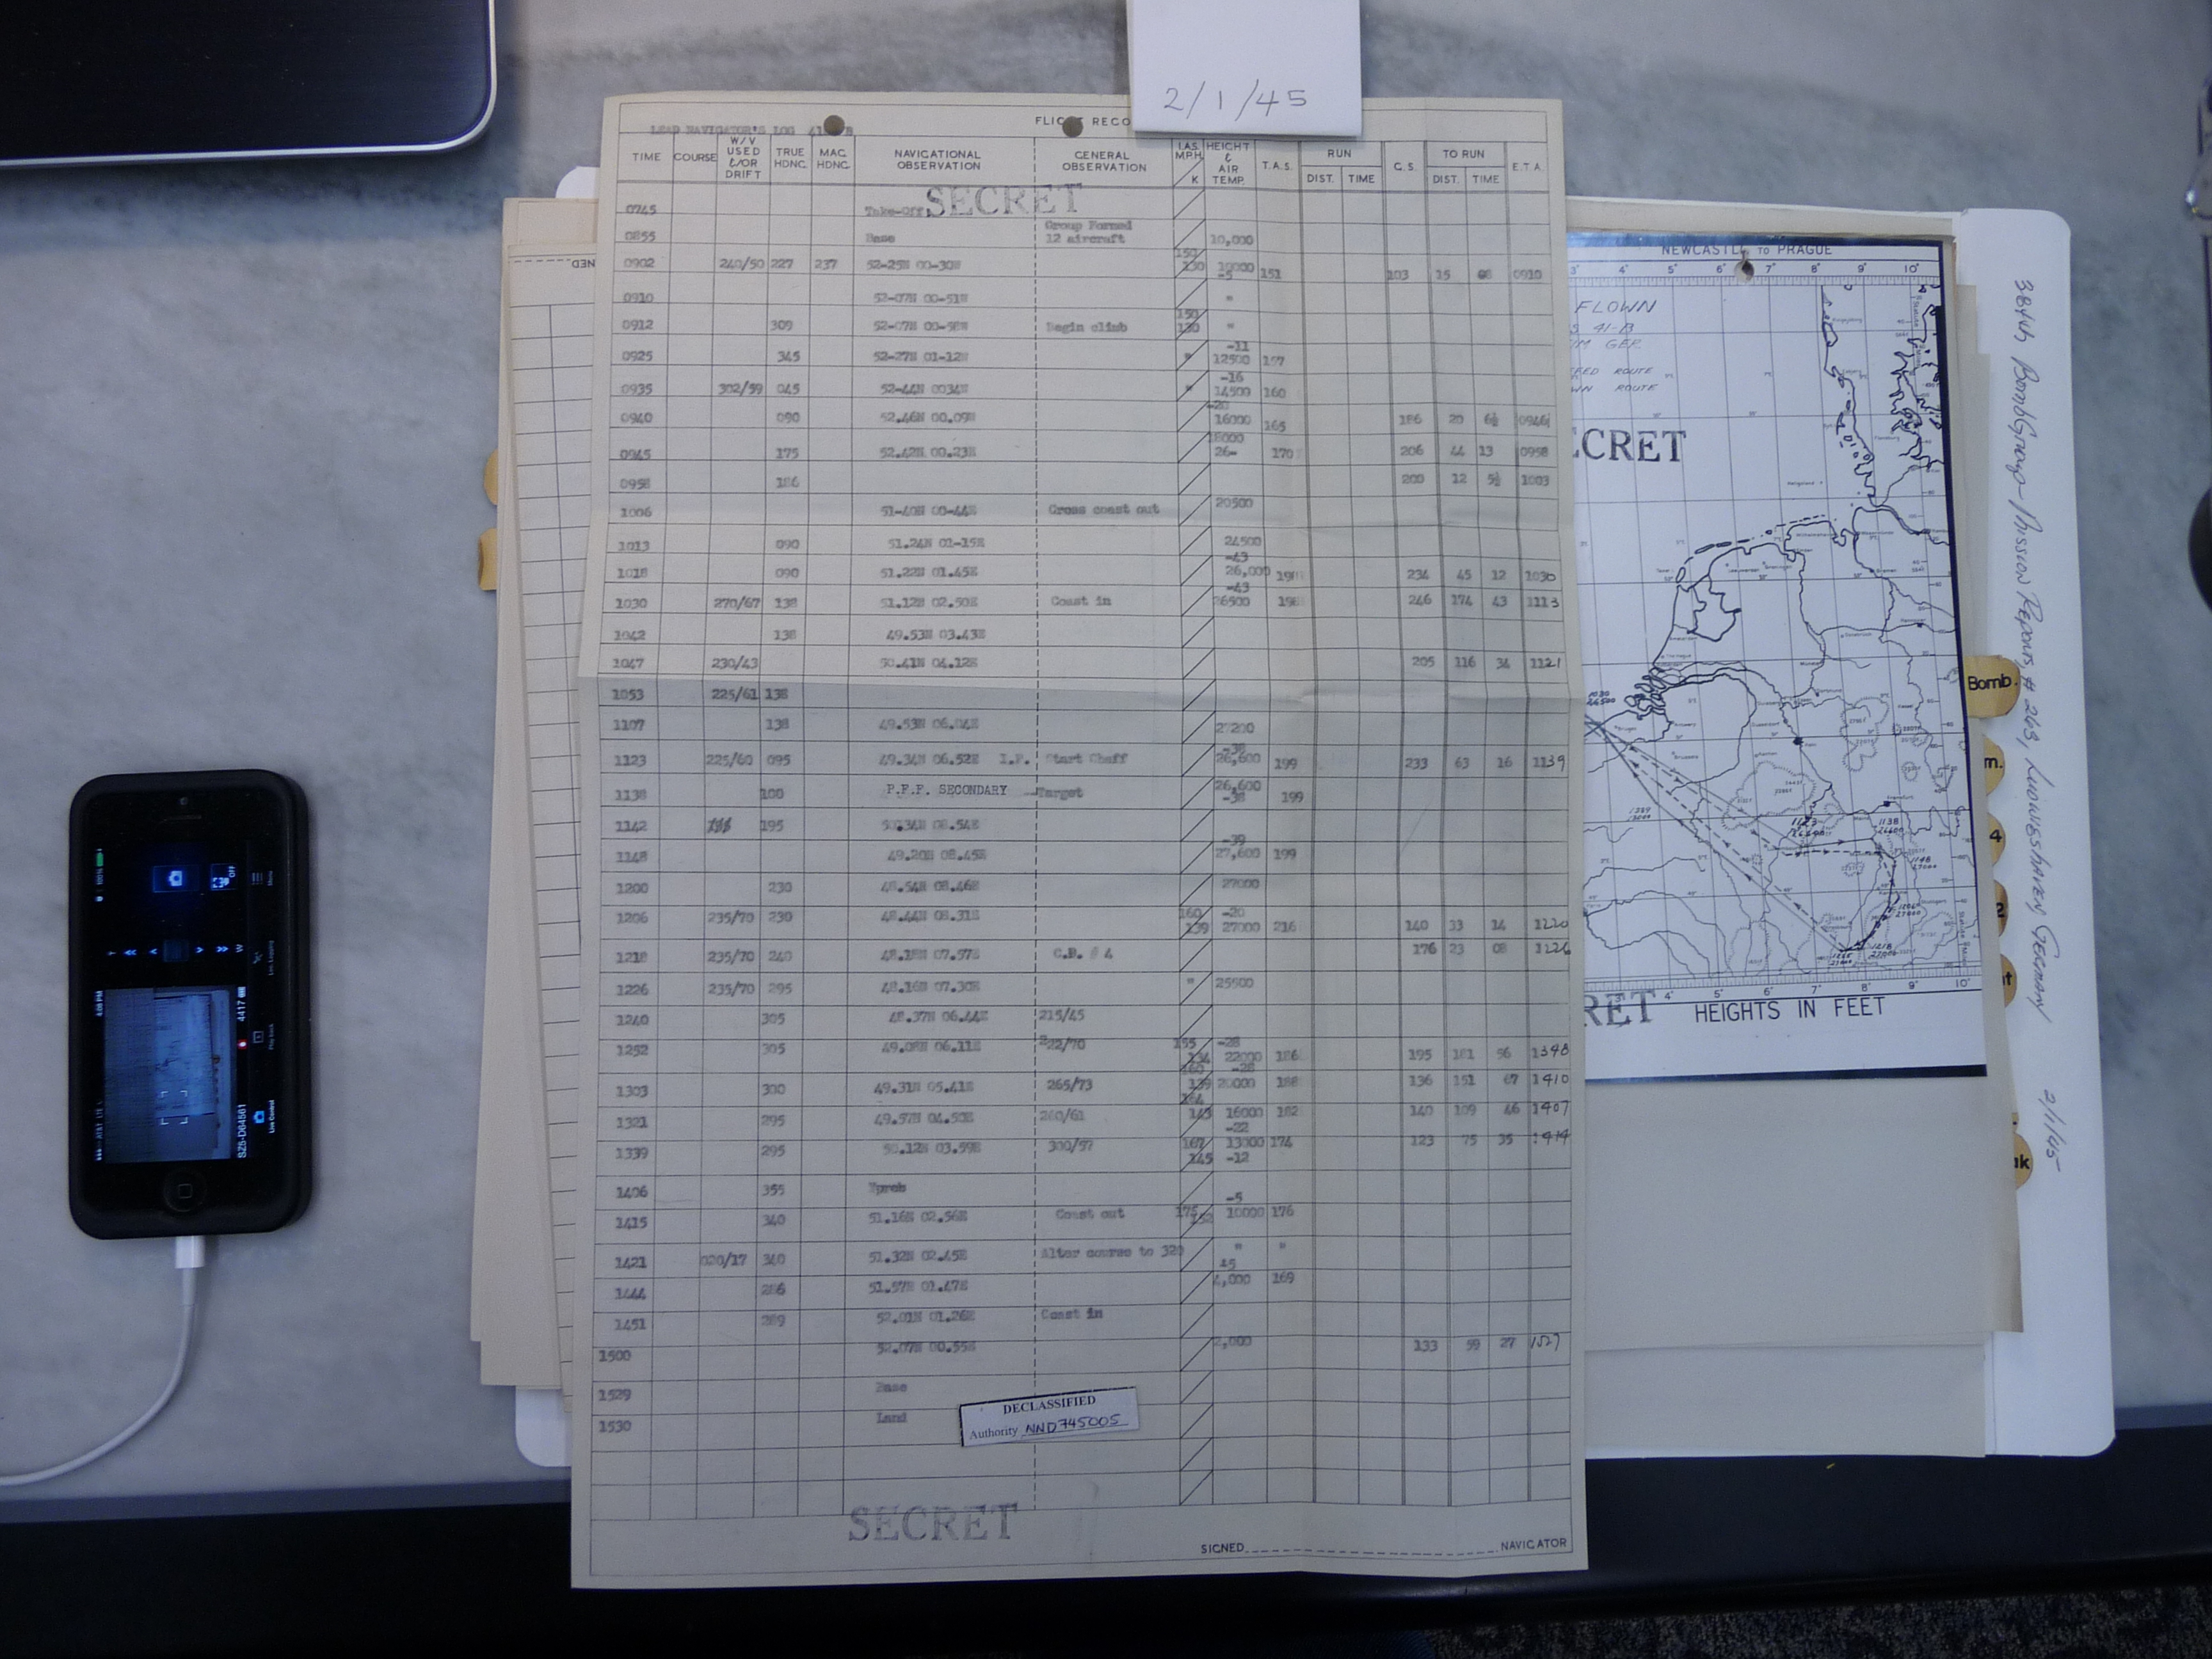 2/1/45
LEAD NAVIGATOR'S LOG
FLIGHT RECO
TIME COURSE W/V USED &/OR DRIFT TRUE HDNG. MAG. HDNG. NAVIGATIONAL OBSERVATION GENERAL OBSERVATION I.A.S. M.P.H. K HEIGHT & AIR TEMP. T.A.S. RUN DIST. TIME G.S. TO RUN DIST. TIME E.T.A.
SECRET
0745 Take-Off
0855 Base Group Formed 12 aircraft 10,000
0902 240/50 227 237 52-25N 00-30W 150 130 10000 -5 151 103 15 08 0910
0910 52-07N 00-51W "
0912 309 52-07N 00-58W Begin climb 150 130 "
0925 345 52-27N 01-12W " -11 12500 157
0935 302/59 045 52-44N 0034W " -16 14500 160
0940 090 52.46N 00.09W -20 16000 165 186 20 6½ 0946½
0945 175 52.42N 00.23E 18000 26- 170 206 44 13 0958
0958 186 200 12 5½ 1003
1006 51-40N 00-44E Cross coast out 20500
1013 090 51.24N 01-15E 24500
1018 090 51.22N 01.45E -43 26,000 198 234 45 12 1030
1030 270/67 138 51.12N 02.50E Coast in -43 26500 198 246 174 43 1113
1042 138 49.53N 03.43E
1047 230/43 50.41N 04.12E 205 116 34 1121
1053 225/61 138
1107 138 49.53N 06.04E 27200
1123 225/60 095 49.34N 06.52E I.P. Start Chaff -38 26,600 199 233 63 16 1139
1138 100 P.F.F. SECONDARY Target 26,600 -38 199
1142 195 50.34N 08.54E
1148 49.20N 08.45E -39 27,600 199
1200 230 48.54N 08.46E 27000
1206 235/70 230 48.44N 08.31E 160 139 -20 27000 216 140 33 14 1220
1218 235/70 240 48.18N 07.57E C.P. # 4 176 23 08 1226
1226 235/70 295 48.16N 07.30E " 25500
1240 305 48.37N 06.44E 215/45
1252 305 49.08N 06.11E 222/70 155 134 -28 22000 186 195 181 56 1348
1303 300 49.31N 05.41E 265/73 160 139 -28 20000 188 136 151 67 1410
1321 295 49.57N 04.50E 260/61 164 143 16000 182 140 109 46 1407
1339 295 50.12N 03.59E 300/57 167 145 -22 13000 -12 174 123 75 35 1414
1406 355 Ypreb
1415 340 51.16N 02.56E Coast out 175 152 -5 10000 176
1421 020/17 340 51.32N 02.45E Alter course to 320 " "
1444 286 51.57N 01.47E +5 4,000 169
1451 289 52.01N 01.26E Coast in
1500 52.07N 00.55E 2,000 133 59 27 1527
1529 Base
1530 Land
DECLASSIFIED
Authority NND745005
SECRET
SIGNED NAVIGATOR
NEWCASTLE TO PRAGUE
3° 4° 5° 6° 7° 8° 9° 10°
FLOWN
41-B
GER.
ROUTE
ROUTE
ECRET
1123
1138
26600
1148
27000
5° 6° 7° 8° 9° 10°
RET
HEIGHTS IN FEET
384th Bomb Group - Mission Reports, # 263, Ludwigshafen, Germany 2/1/45
Bomb.
m.
4
2
at
ak
4417
SZ5-D64561
Live Control
Menu
OFF